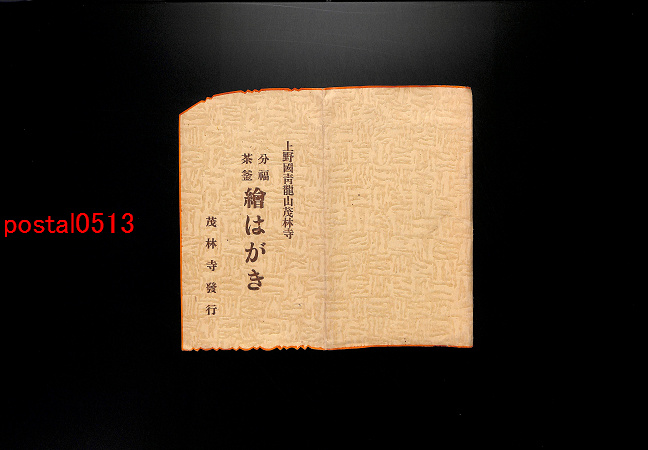 上野國靑龍山茂林寺
分福
茶釜
繪はがき
茂林寺發行
postal0513